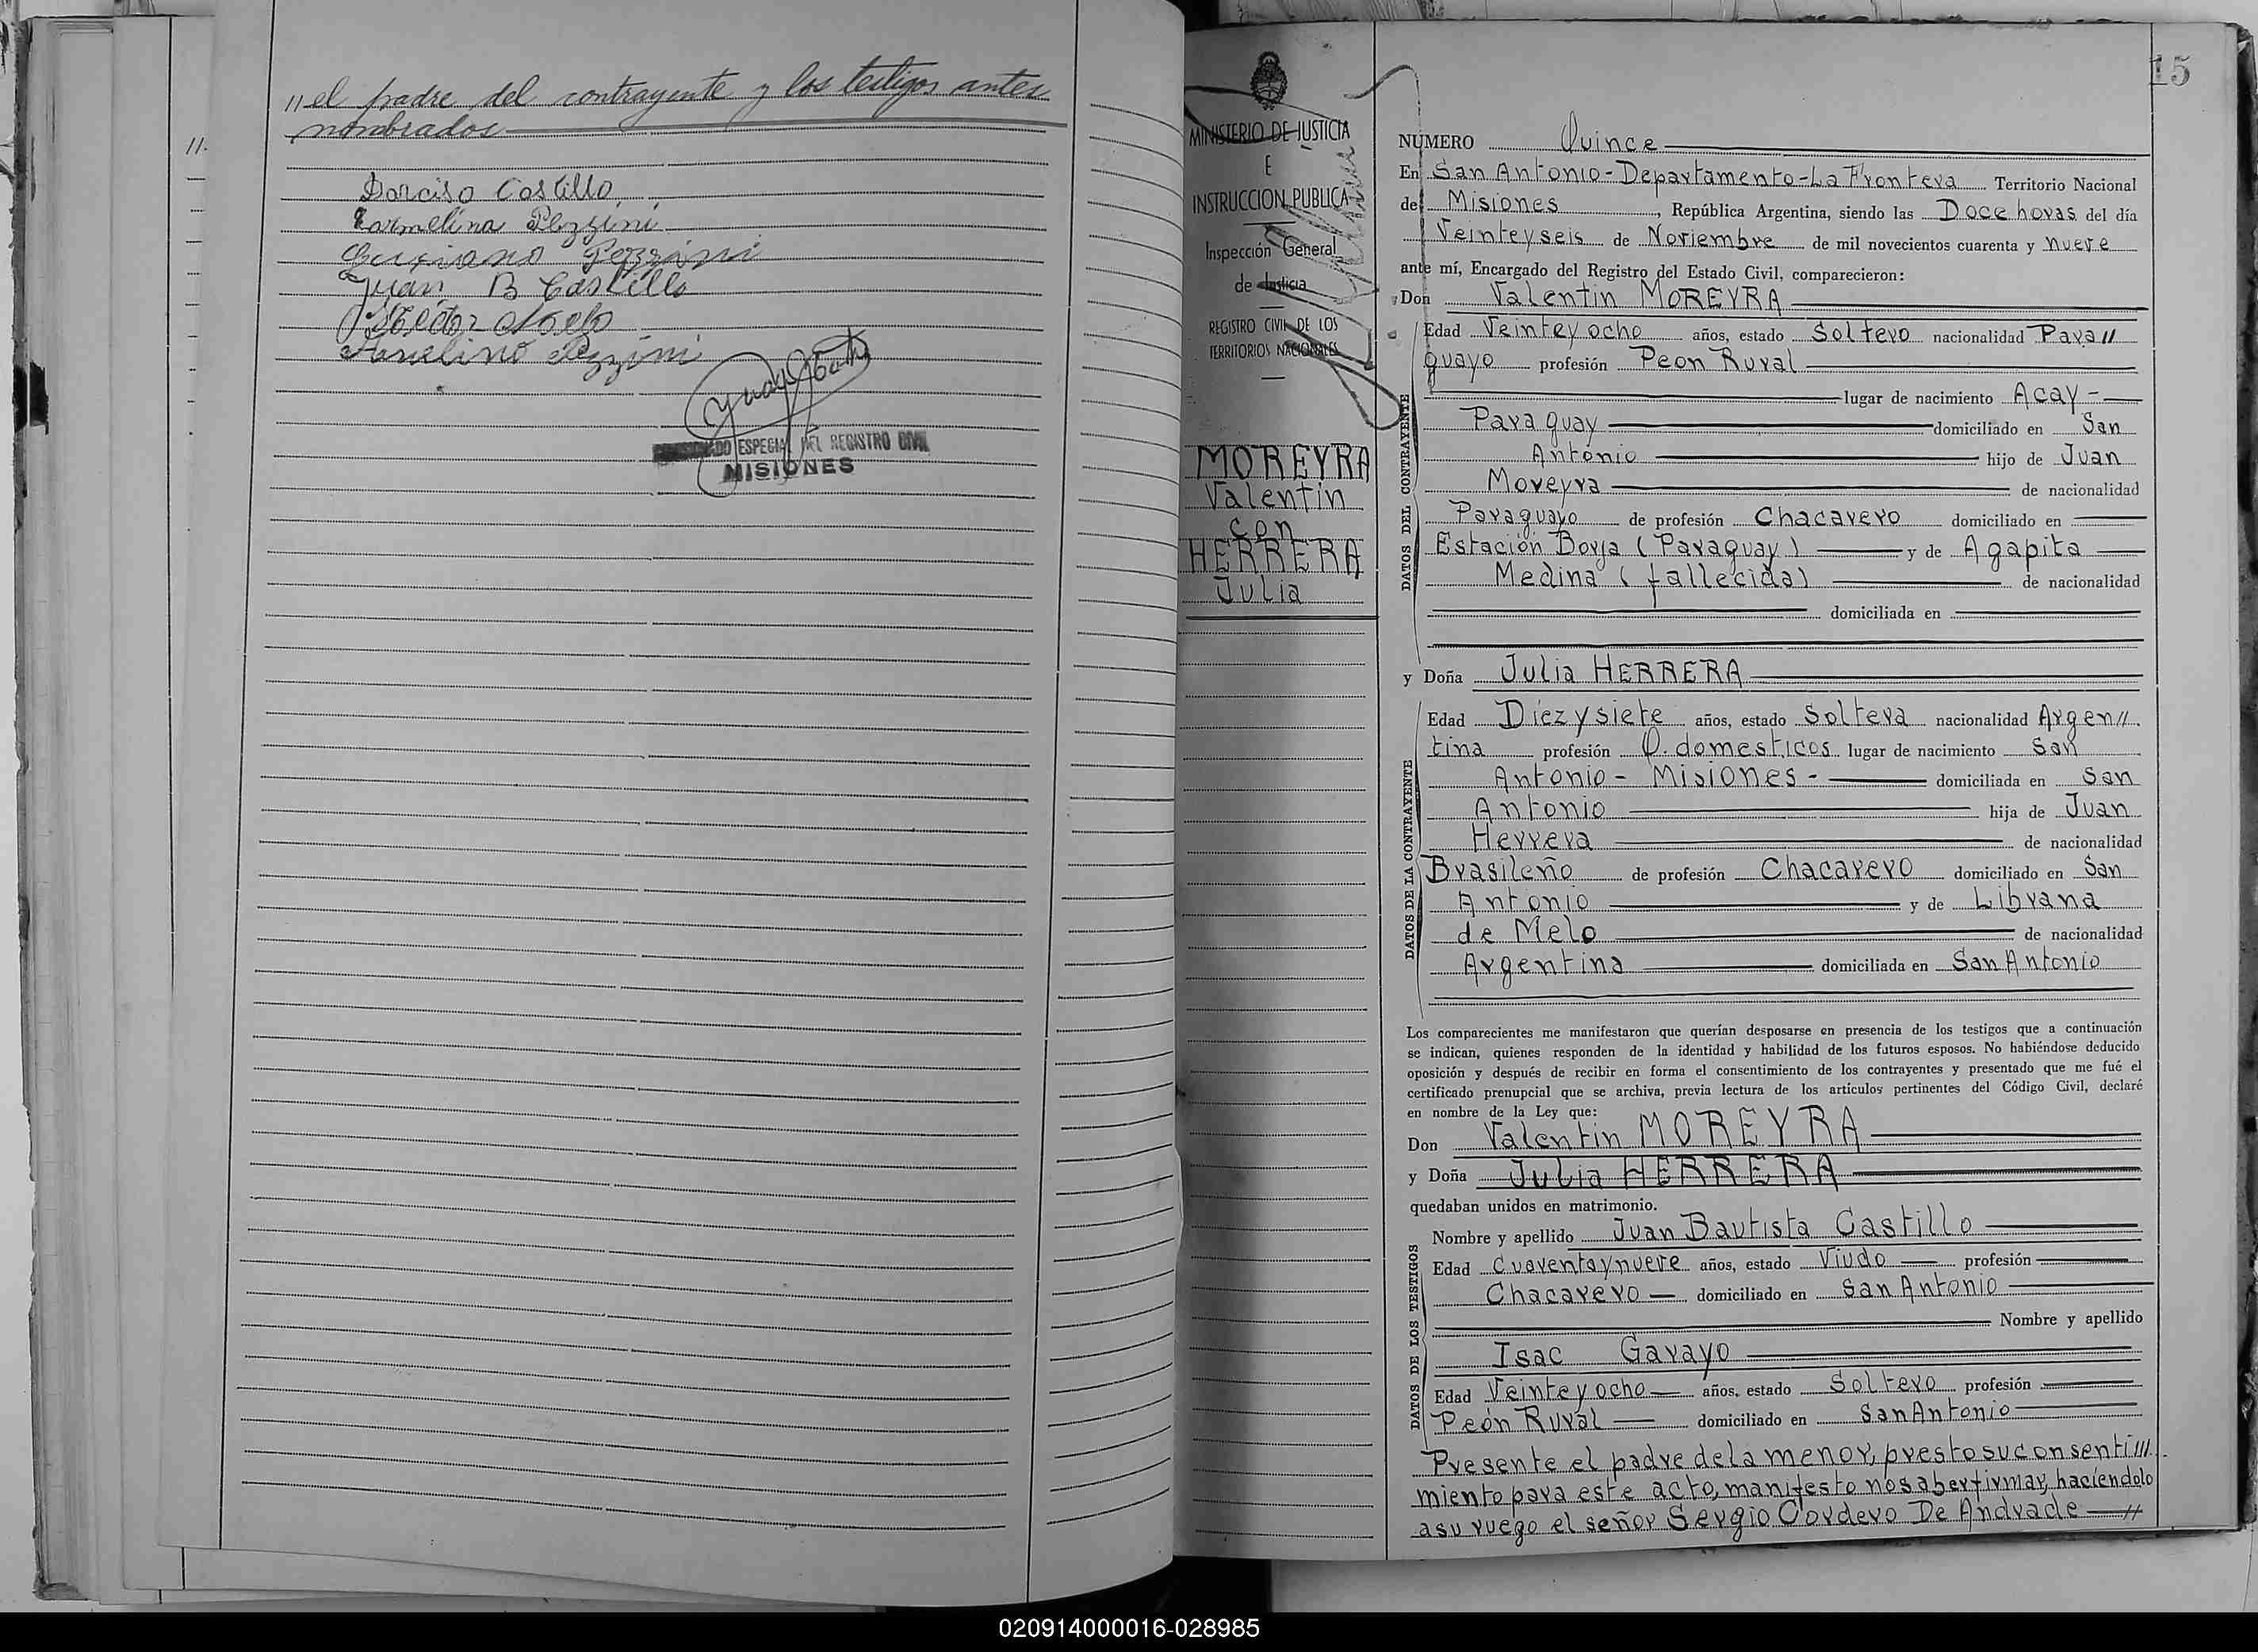 11.
// el padre del contrayente y los testigos antes
nombrados
Darciso Castillo
Carmelina Pezzini
Juan B Castillo
Avelino Pezzini
ESPECIAL DEL REGISTRO CIVIL
MISIONES
MINISTERIO DE JUSTICIA
E
INSTRUCCION PUBLICA
Inspección General
de Justicia
REGISTRO CIVIL DE LOS
TERRITORIOS NACIONALES
MOREYRA
Valentin
con
HERRERA
Julia
15
NUMERO Quince
En San Antonio-Departamento-La Frontera Territorio Nacional
de Misiones, República Argentina, siendo las Doce horas del día
Veinteyseis de Noviembre de mil novecientos cuarenta y nueve
ante mí, Encargado del Registro del Estado Civil, comparecieron:
Don Valentin MOREYRA
DATOS DEL CONTRAYENTE
Edad Veinteyocho años, estado Soltero nacionalidad Para//
guayo profesión Peon Rural
lugar de nacimiento Acay-
Paraguay domiciliado en San
Antonio hijo de Juan
Moreyra de nacionalidad
Paraguayo de profesión Chacarero domiciliado en
Estación Borja (Paraguay) y de Agapita
Medina (fallecida) de nacionalidad
domiciliada en
y Doña Julia HERRERA
DATOS DE LA CONTRAYENTE
Edad Diezysiete años, estado Soltera nacionalidad Argen//
tina profesión Q. domesticos lugar de nacimiento San
Antonio- Misiones- domiciliada en San
Antonio hija de Juan
Herrera de nacionalidad
Brasileño de profesión Chacarero domiciliado en San
Antonio y de Librana
de Melo de nacionalidad
Argentina domiciliada en San Antonio
Los comparecientes me manifestaron que querían desposarse en presencia de los testigos que a continuación
se indican, quienes responden de la identidad y habilidad de los futuros esposos. No habiéndose deducido
oposición y después de recibir en forma el consentimiento de los contrayentes y presentado que me fué el
certificado prenupcial que se archiva, previa lectura de los artículos pertinentes del Código Civil, declaré
en nombre de la Ley que:
Don Valentin MOREYRA
y Doña Julia HERRERA
quedaban unidos en matrimonio.
DATOS DE LOS TESTIGOS
Nombre y apellido Juan Bautista Castillo
Edad Cuarentaynueve años, estado Viudo profesión
Chacarero domiciliado en San Antonio
Nombre y apellido
Isac Garayo
Edad Veinteyocho años, estado Soltero profesión
Peón Rural domiciliado en San Antonio
Presente el padre de la menor, presto su consenti///
miento para este acto, manifesto no saber firmar, haciendolo
a su ruego el señor Sergio Cordero De Andrade //
020914000016-028985